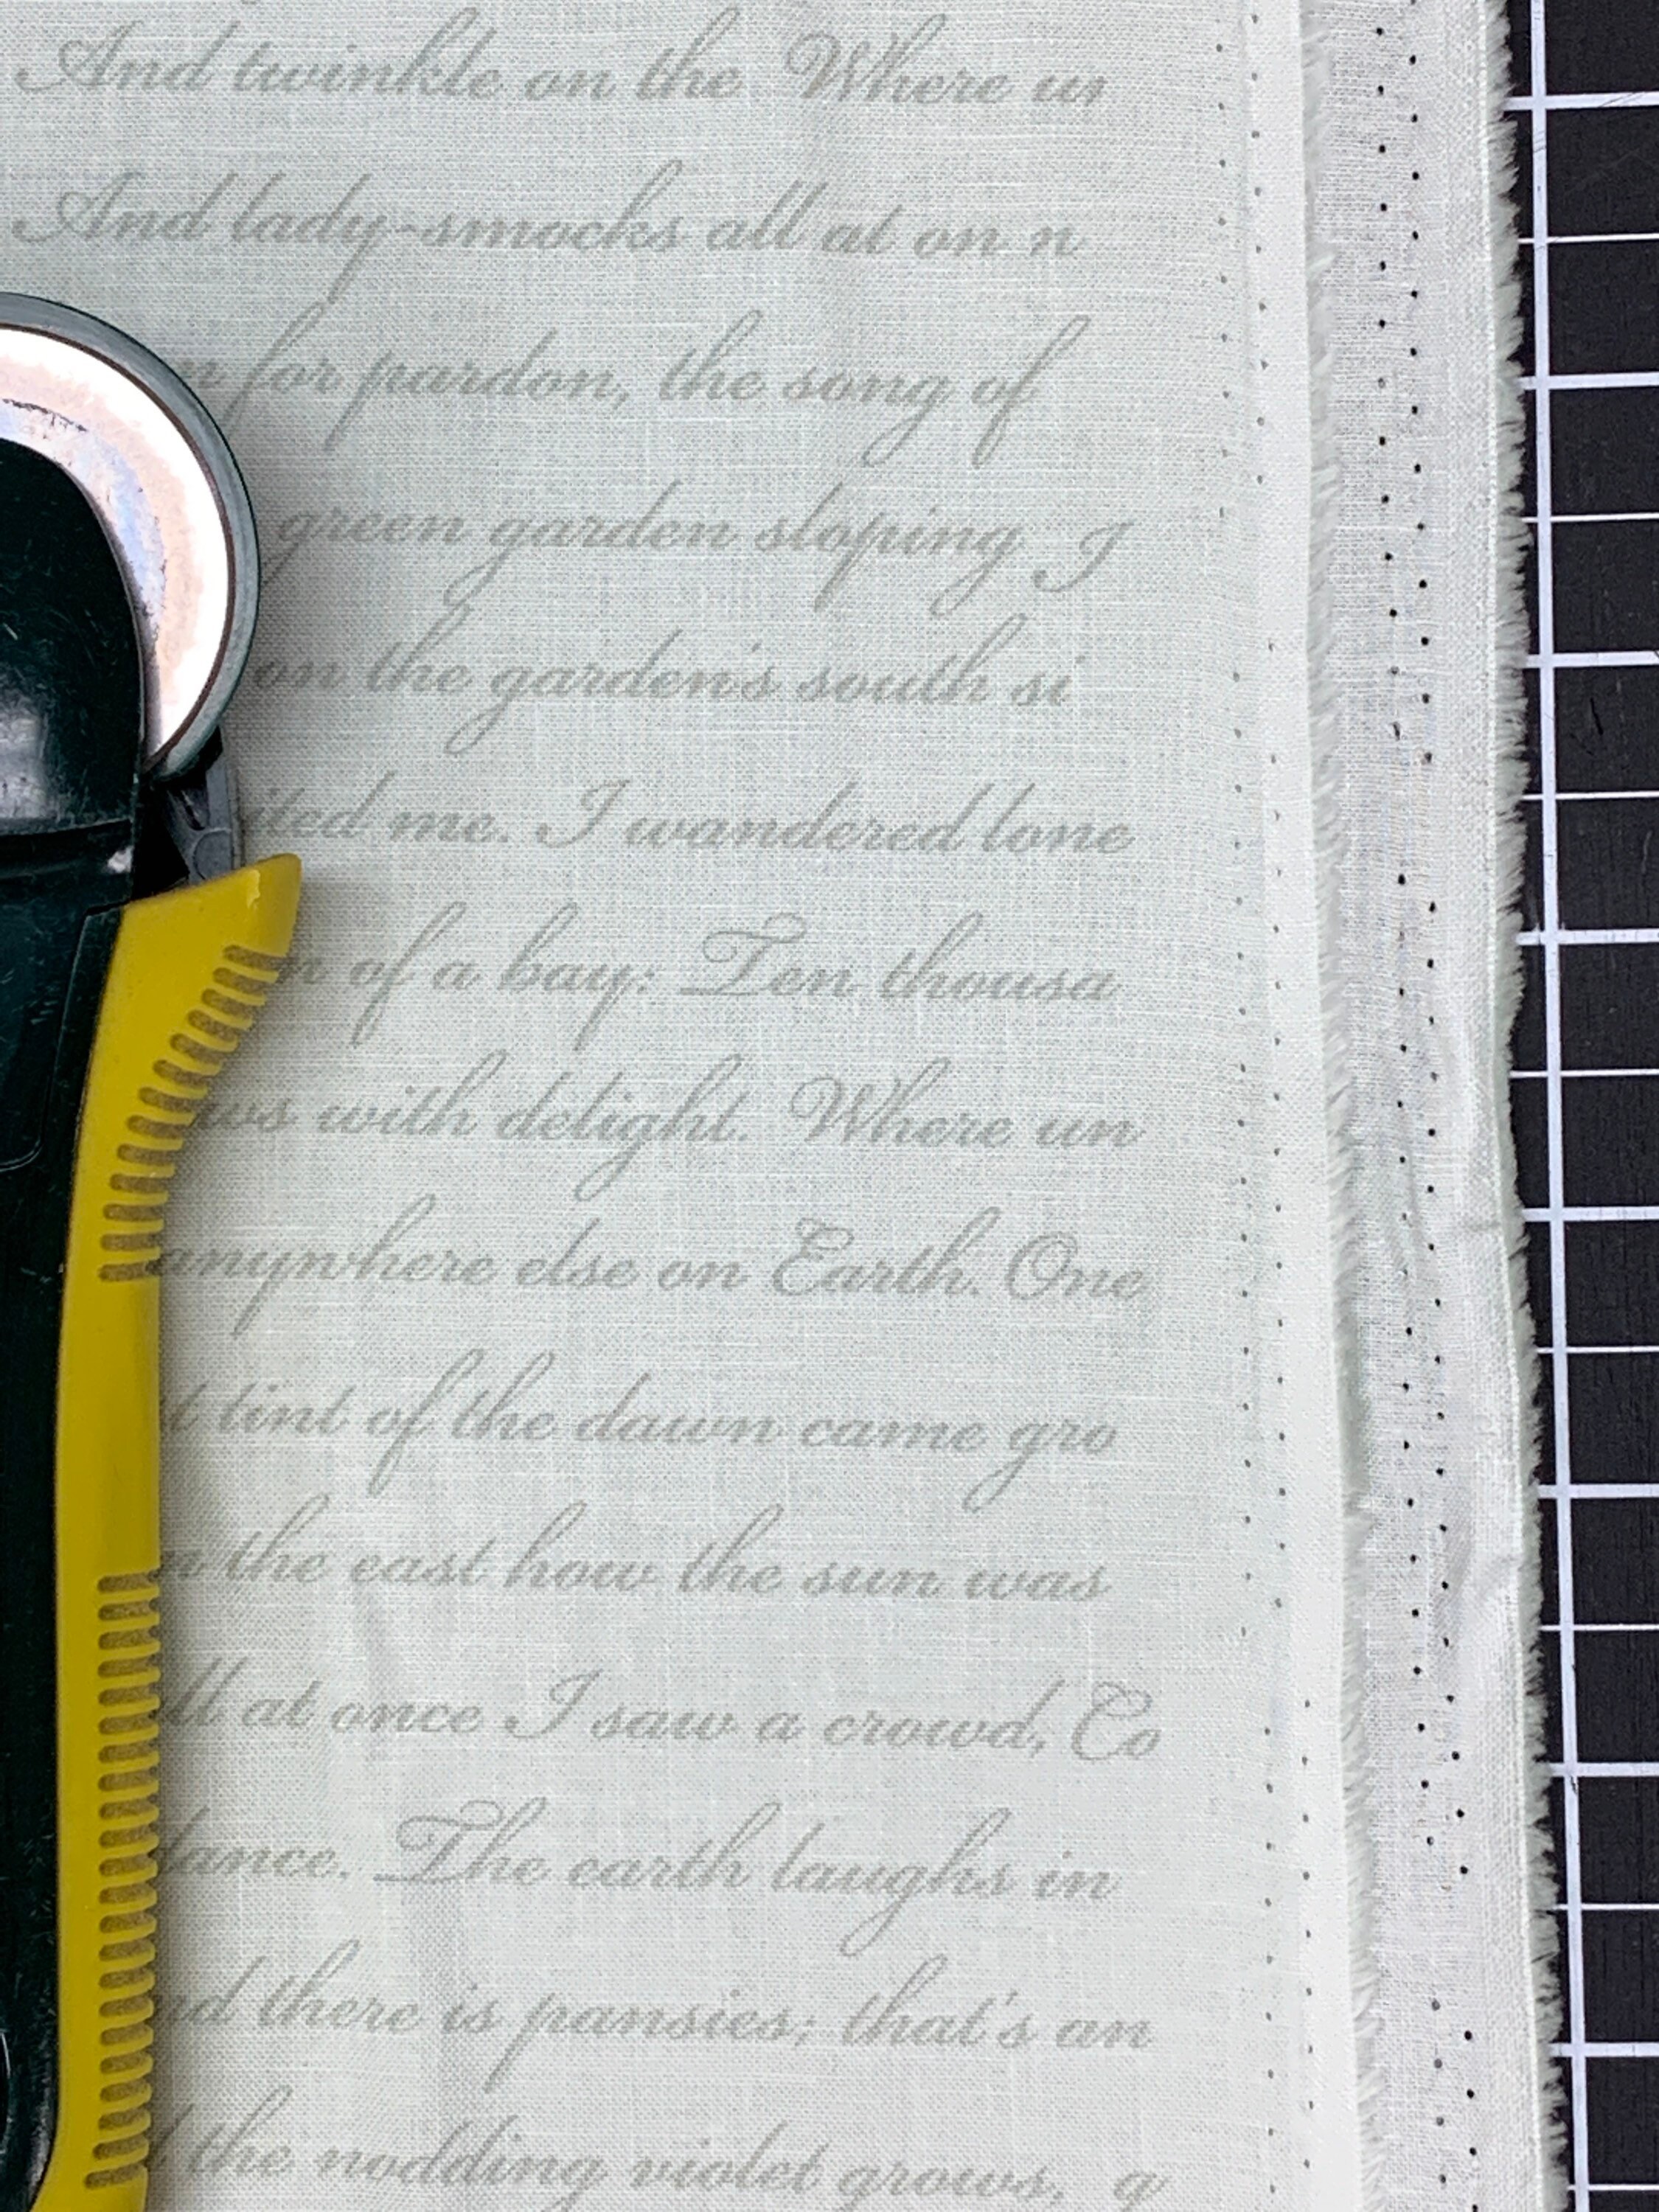 And twinkle on the Where un
And lady-smocks all at on n
for pardon, the song of
green garden sloping I
on the garden's south si
ited me. I wandered lone
of a bay: Ten thousa
ws with delight. Where un
anywhere else on Earth. One
tint of the dawn came gro
n the east how the sun was
ll at once I saw a crowd, Co
dance. The earth laughs in
nd there is pansies; that's an
the nodding violet grows, q